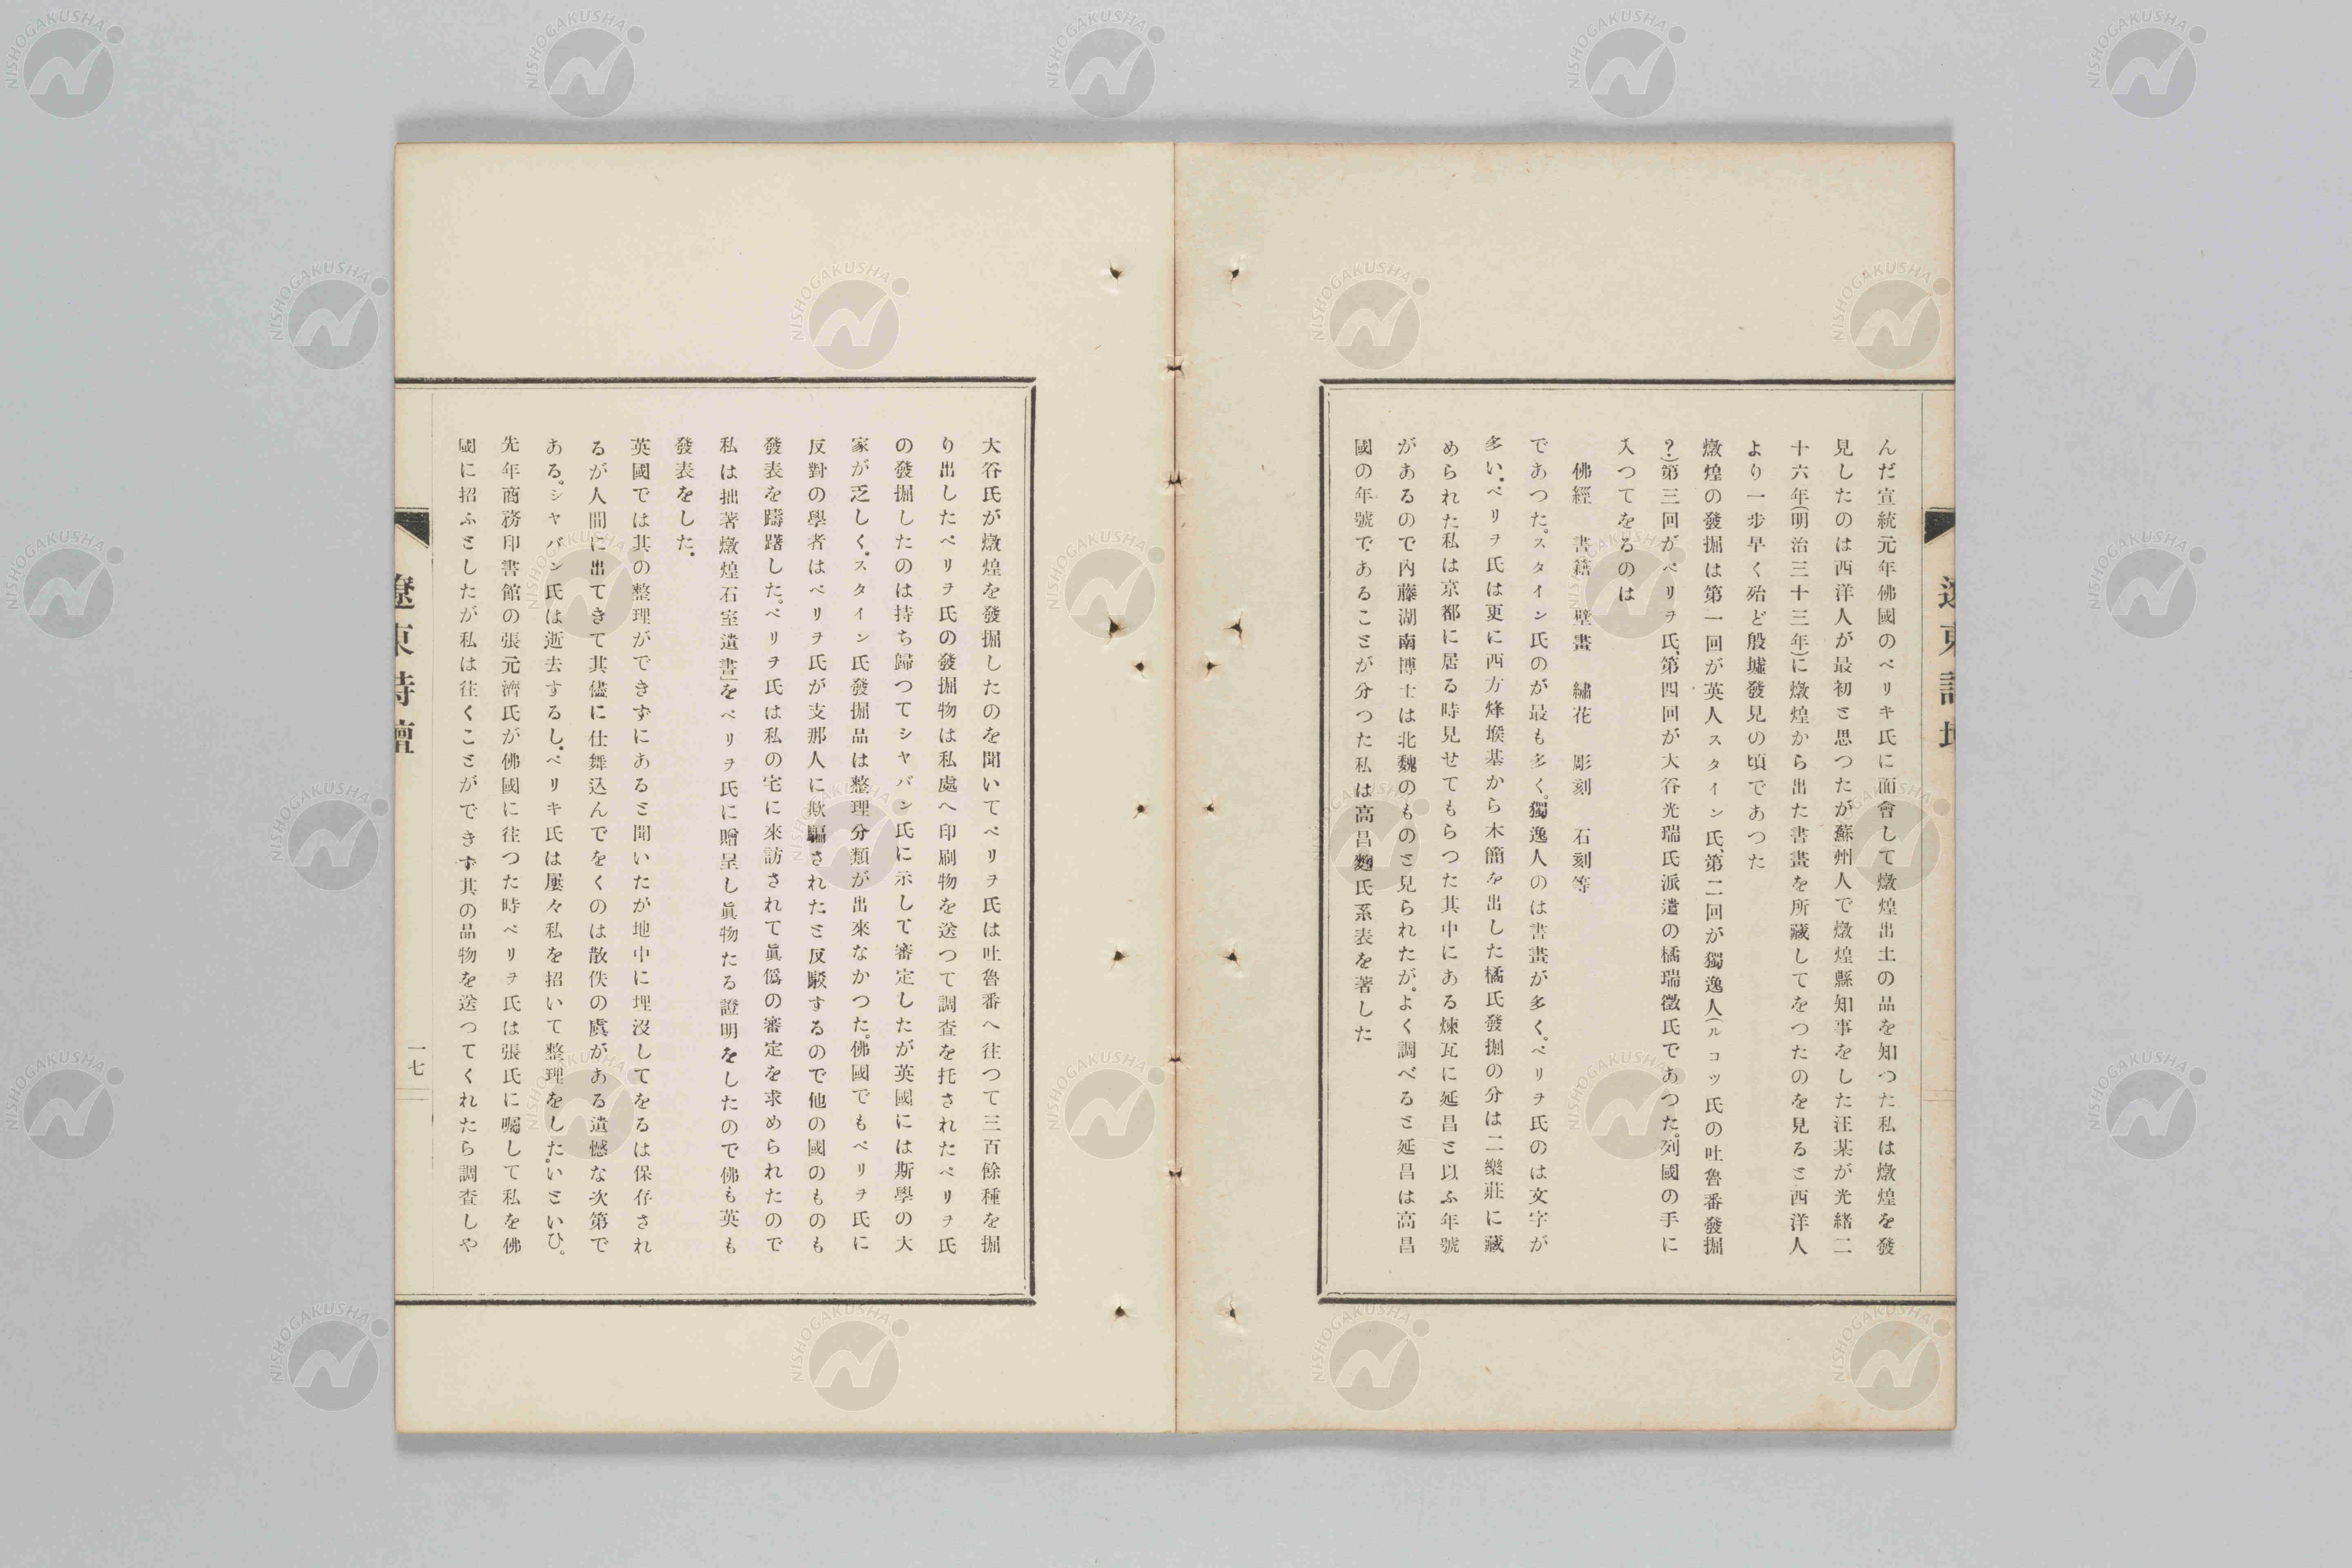 んだ宣統元年佛國のペリキ氏に面會して燉煌出土の品を知つた私は燉煌を發
見したのは西洋人が最初と思つたが蘇州人で燉煌縣知事をした汪某が光緒二
十六年(明治三十三年)に燉煌から出た書畫を所藏してをつたのを見ると西洋人
より一步早く殆ど殷墟發見の頃であつた
燉煌の發掘は第一回が英人スタイン氏、第二回が獨逸人(ルコツ氏の吐魯番發掘
?)第三回がペリヲ氏、第四回が大谷光瑞氏派遣の橘瑞徵氏であつた。列國の手に
入つてをるのは
佛經 書籍 壁畫 繡花 彫刻 石刻等
であつた。スタイン氏のが最も多く。獨逸人のは書畫が多く。ペリヲ氏のは文字が
多い。ペリヲ氏は更に西方烽堠基から木簡を出した橘氏發掘の分は二樂莊に藏
められた私は京都に居る時見せてもらつた其中にある煉瓦に延昌と以ふ年號
があるので内藤湖南博士は北魏のものと見られたが。よく調べると延昌は高昌
國の年號であることが分つた私は高昌麴氏系表を著した
大谷氏が燉煌を發掘したのを聞いてペリヲ氏は吐魯番へ往つて三百餘種を掘
り出したペリヲ氏の發掘物は私處へ印刷物を送つて調査を托されたペリヲ氏
の發掘したのは持ち歸つてシヤバン氏に示して審定したが英國には斯學の大
家が乏しく。スタイン氏發掘品は整理分類が出來なかつた。佛國でもペリヲ氏に
反對の學者はペリヲ氏が支那人に欺騙されたと反駁するので他の國のものも
發表を躊躇した。ペリヲ氏は私の宅に來訪されて眞僞の審定を求められたので
私は拙著燉煌石室遺書」をペリヲ氏に贈呈し眞物たる證明をしたので佛も英も
發表をした。
英國では其の整理ができずにあると聞いたが地中に埋沒してをるは保存され
るが人間に出てきて其儘に仕舞込んでをくのは散佚の虞がある遺憾な次第で
ある。シヤバン氏は逝去するし。ペリキ氏は屢々私を招いて整理をした。いといひ。
先年商務印書館の張元濟氏が佛國に往つた時ペリヲ氏は張氏に囑して私を佛
國に招ふとしたが私は往くことができず其の品物を送つてくれたら調査しや
遼東詩壇
一七